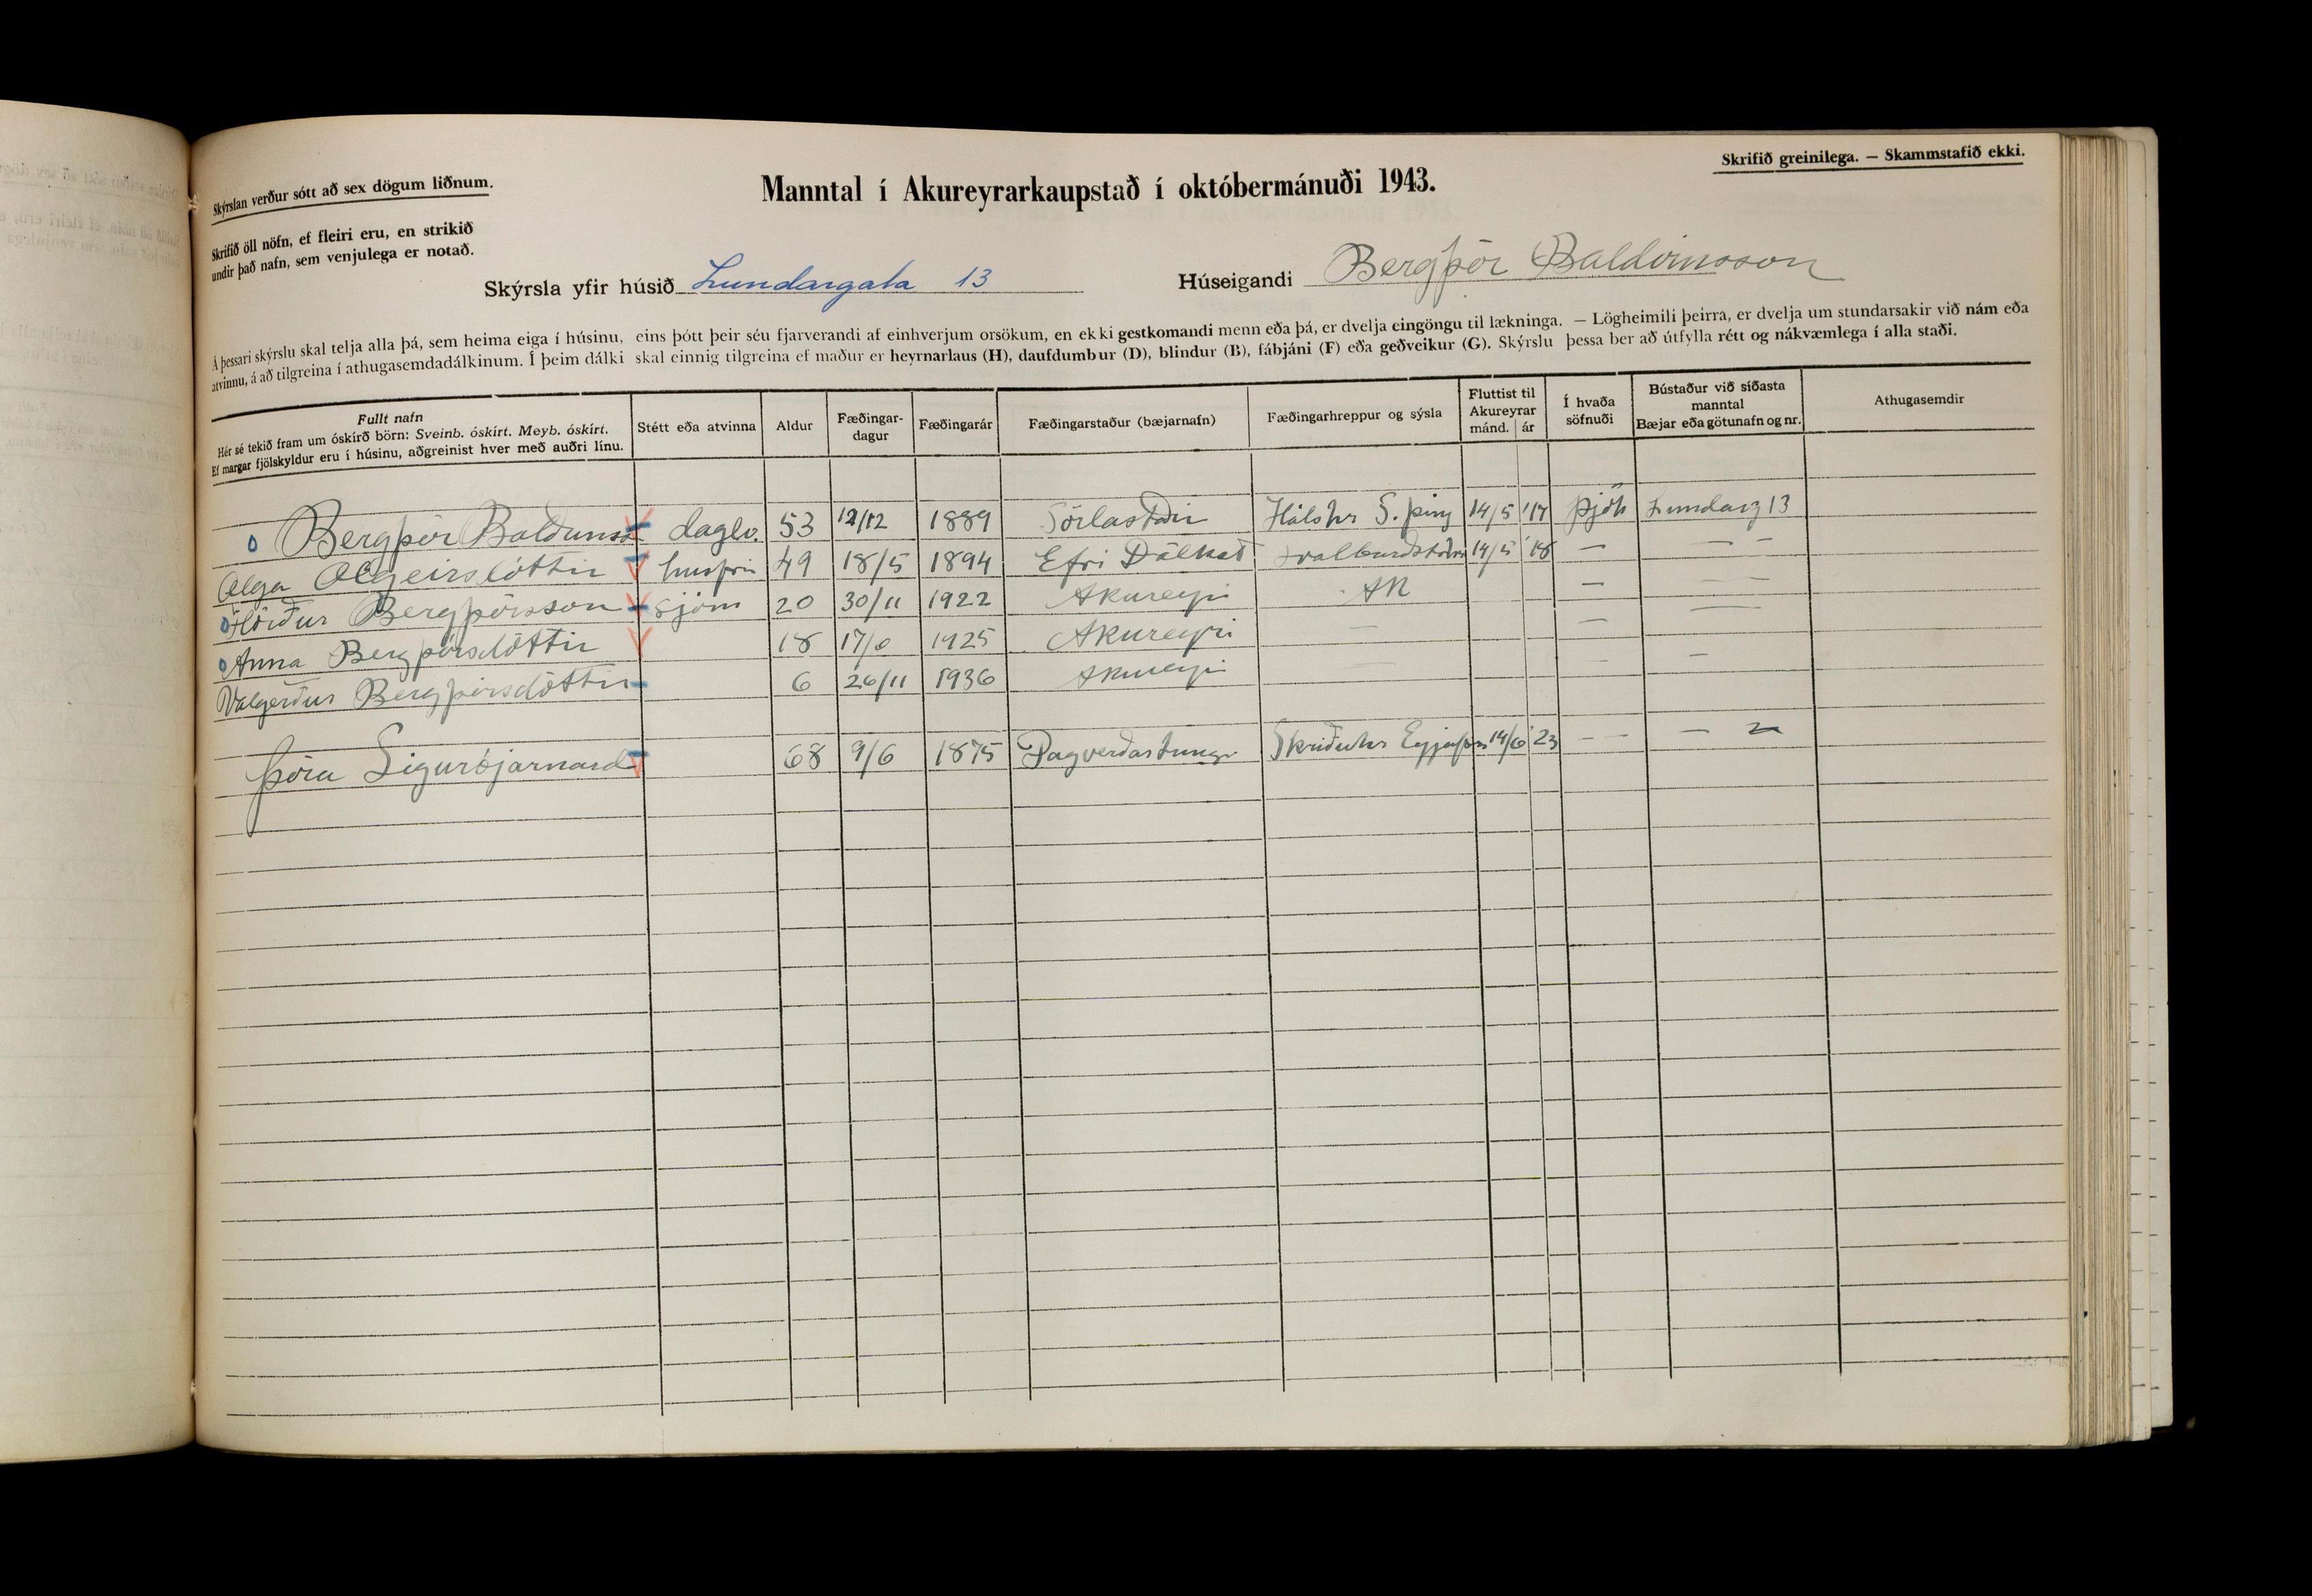 Skýrslan verður sótt að sex dögum liðnum.
Manntal í Akureyrarkaupstað í októbermánuði 1943.
Skrifið greinilega. — Skammstafið ekki.
Skrifið öll nöfn, ef fleiri eru, en strikið
undir það nafn, sem venjulega er notað.
Skýrsla yfir húsið Lundargata 13 Húseigandi Bergþór Baldvinsson
Á þessari skýrslu skal telja alla þá, sem heima eiga í húsinu, eins þótt þeir séu fjarverandi af einhverjum orsökum, en ekki gestkomandi menn eða þá, er dvelja eingöngu til lækninga. — Lögheimili þeirra, er dvelja um stundarsakir við nám eða
atvinnu, á að tilgreina í athugasemdadálkinum. Í þeim dálki skal einnig tilgreina ef maður er heyrnarlaus (H), daufdumbur (D), blindur (B), fábjáni (F) eða geðveikur (G). Skýrslu þessa ber að útfylla rétt og nákvæmlega í alla staði.
Fullt nafn
Hér sé tekið fram um óskírð börn: Sveinb. óskírt. Meyb. óskírt.
Ef margar fjölskyldur eru í húsinu, aðgreinist hver með auðri línu.
Stétt eða atvinna
Aldur
Fæðingar-
dagur
Fæðingarár
Fæðingarstaður (bæjarnafn)
Fæðingarhreppur og sýsla
Fluttist til
Akureyrar
mánd. ár
Í hvaða
söfnuði
Bústaður við síðasta
manntal
Bæjar eða götunafn og nr.
Athugasemdir
Bergþór Baldvinss daglv. 53 12/12 1889 Sörlastaðir Hálshr S. þing 14/5 '17 Þjóð Lundarg 13
Olga Olgeirsdóttir húsfrú 49 18/5 1894 Efri Dálkst 14/5 '18 — — —
Hörður Bergþórsson sjóm 20 30/11 1922 Akureyri AK —
Anna Bergþórsdóttir 18 1925 Akureyri — —
Valgerður Bergþórsdóttir 6 26/11 1936 Akureyri — — —
Þóra Sigurbjarnard 68 9/6 1875 Dagverðartunga Skriðuhr Eyjafj 14/6 '23 — — —